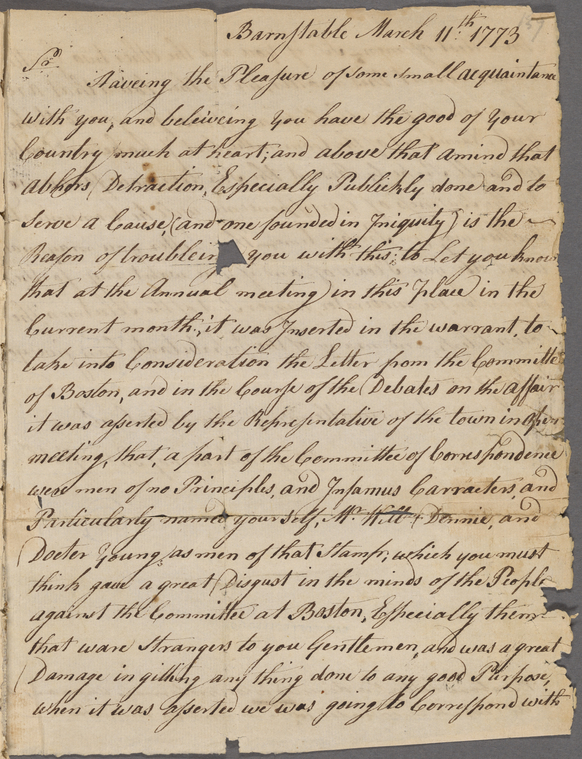 Barnstable March 11th. 1773
Sr.
Haveing the Pleasure of some small acquaintance
with you, and beleiveing you have the good of your
Country much at heart; and above that amind that
abhors Detraction, Especially Publickly done and to
serve a Cause (and one founded in Iniquity) is the
Reason of troubleing you with this: to Let you know
that at the Annual meeting in this Place in the
Current month, it was Inserted in the warrant, to
take into Consideration the Letter from the Committee
of Boston, and in the Course of the Debates on the affair
it was asserted by the Representative of the town in open
meeting, that, a part of the Committee of Correspondence
ware men of no Principles, and Infamus Carracters, and
Particularly named yourself, Mr. & Dennie, and
Docter Young, as men of that Stamp; which you must
think gave a great Disgust in the minds of the People
against the Committee at Boston, Especially them
that ware Strangers to you Gentlemen, and was a great
Damage in gitting any thing done to any good Purpose,
when it was asserted we was going to Correspond with